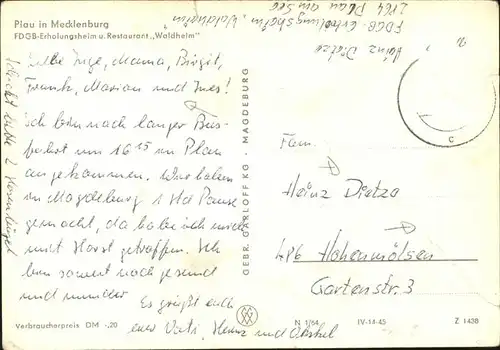 Plau in Mecklenburg
FDGB-Erholungsheim u. Restaurant „Waldheim"
Heinz Dietze
FDGB-Erholungsheim „Waldheim"
2864 Plau am See
Liebe Inge, Mama, Birgit,
Frank, Marian und Ines!
Ich bin nach langer Bus-
fahrt um 16¹⁵ in Plau
angekommen. Wir haben
in Magdeburg 1 Std Pause
gemacht, da habe ich mich
mit Horst getroffen. Ich
bin soweit noch gesund
und munter.
Es grüßt euch
euer Vati, Heinz und
Schickt bitte 2 Kleiderbügel
GEBR. GARLOFF KG - MAGDEBURG
Fam.
Heinz Dietze
486 Hohenmölsen
Gartenstr. 3
Verbraucherpreis DM -,20
N 1/64
IV-14-45
Z 1438